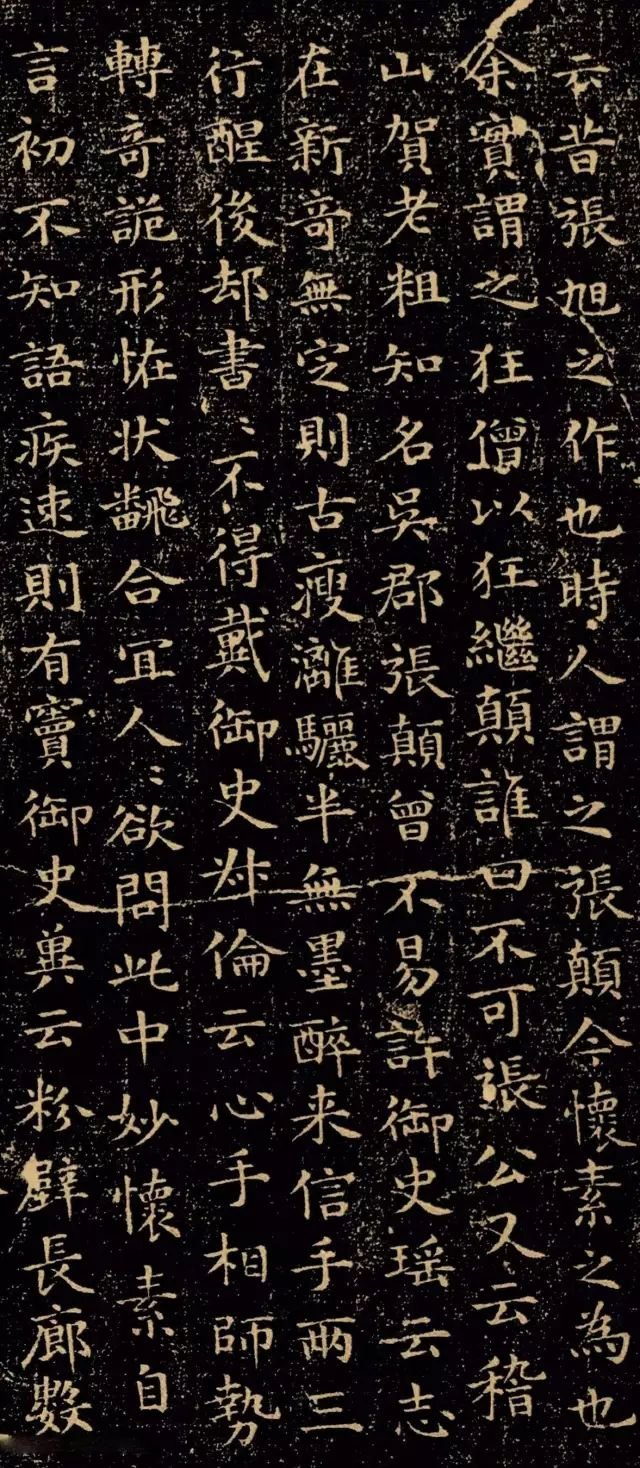 云昔張旭之作也時人謂之張顛今懷素之為也
余實謂之狂僧以狂繼顛誰曰不可張公又云稽
山賀老粗知名吳郡張顛曾不易許御史瑶云志
在新奇無定則古瘦灕驪半無墨醉来信手两三
行醒後却書〻不得戴御史叔倫云心手相師勢
轉奇詭形恠状飜合冝人〻欲問此中妙懷素自
言初不知語疾速則有竇御史兾云粉壁長廊數